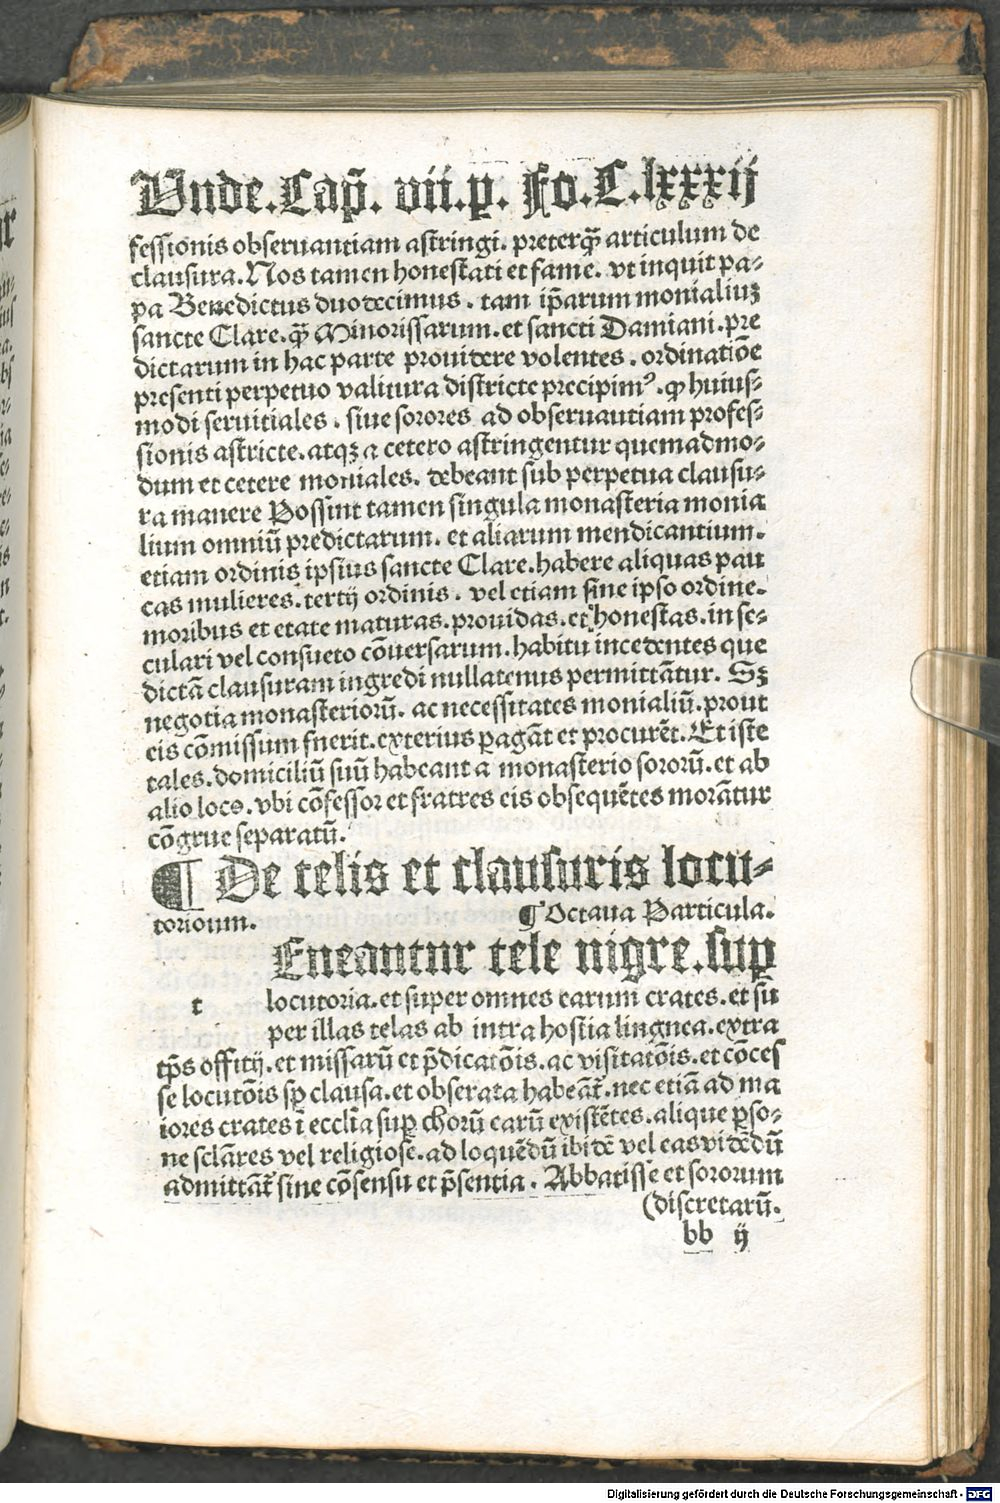 Unde. Cap̄. vii. p. Fo. C. lxxxij
fessionis obseruantiam astringi. preterq̄ articulum de
clausura. Nos tamen honestati et fame. vt inquit pa⸗
pa Benedictus duodecimus. tam ip̄arum monialiuꝫ
sancte Clare. q̄ Minorissarum. et sancti Damiani. pre
dictarum in hac parte prouidere volentes. ordinatiōe
presenti perpetuo valitura districte precipimꝰ. ꝙ huius⸗
modi seruitiales. siue sorores ad obseruautiam profes⸗
sionis astricte. atqꝫ a cetero astringentur quemadmo⸗
dum et cetere moniales. debeant sub perpetua clausu⸗
ra manere Possint tamen singula monasteria monia
lium omniū predictarum. et aliarum mendicantium.
etiam ordinis ipsius sancte Clare. habere aliquas pau
cas mulieres. tertij ordinis. vel etiam sine ipso ordine.
moribus et etate maturas. prouidas. et honestas. in se⸗
culari vel consueto cōuersarum. habitu incedentes que
dictā clausuram ingredi nullatenus permittātur. Sꝫ
negotia monasteriorū. ac necessitates monialiū. prout
eis cōmissum fnerit. exterius ꝑagāt et procurēt. Et iste
tales. domiciliū suū habeant a monasterio sororū. et ab
alio loco. vbi cōfessor et fratres eis obsequētes morātur
cōgrue separatū.
¶ De telis et clausuris locu⸗
torioum. ¶ Octaua Particula.
Eneantnr tele nigre. suꝑ
t locutoria. et super omnes earum crates. et su
per illas telas ab intra hostia lingnea. extra
tp̄s offitij. et missarū et p̄dicatōis. ac visitatōis. et cōces
se locutōis sp̄ clausa. et obserata habeāt̄. nec etiā ad ma
iores crates ī eccl̄ia suꝑ chorū earū existētes. alique ꝑso⸗
ne scl̄ares vel religiose. ad loquēdū ibidē vel eas vidēdū
admittāt̄ sine cōsensu et p̄sentia. Abbatisse et sororum
(discretarū.
bb ij
Digitalisierung gefördert durch die Deutsche Forschungsgemeinschaft - DFG